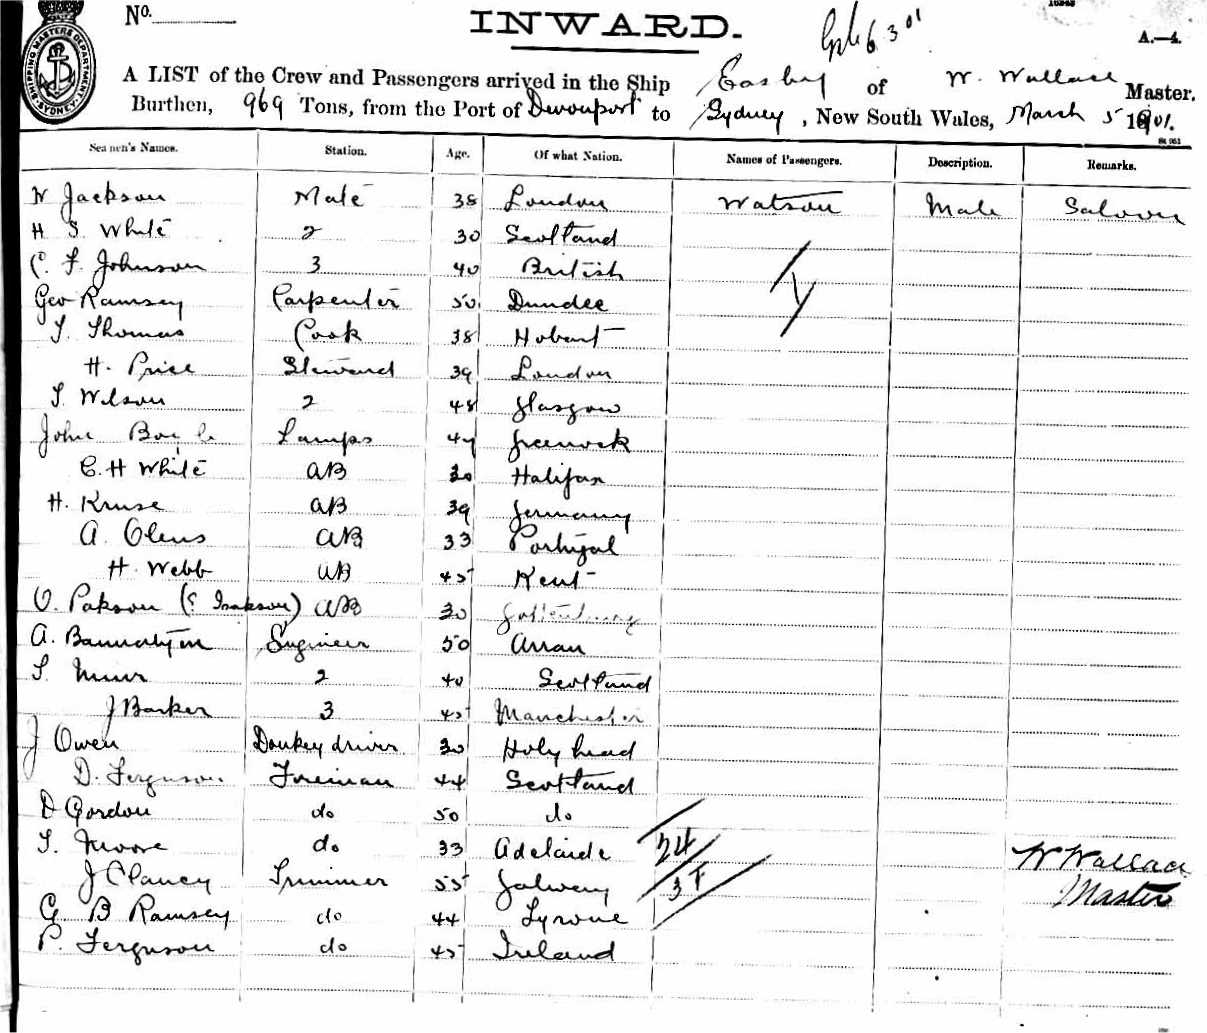 No.
INWARD.
6 3 01
A.—4.
SHIPPING MASTERS DEPARTMENT SYDNEY
A LIST of the Crew and Passengers arrived in the Ship Easby of W. Wallace Master.
Burthen, 969 Tons, from the Port of Devonport to Sydney, New South Wales, March 5 1901.
Seamen's Names. Station. Age. Of what Nation. Names of Passengers. Description. Remarks.
W Jackson Mate 38 London Watson Male Saloon
H S. White 2 30 Scotland
C. F. Johnson 3 40 British
Geo Ramsey Carpenter 50 Dundee
T. Thomas Cook 38 Hobart
H. Price Steward 39 London
T. Wilson 2 48 Glasgow
John Lamps 47 Greenock
C. H White AB 30 Halifax
H. Kruse AB 39 Germany
A. Olens AB 33 Portugal
H. Webb AB 45 Kent
O. Pakson (? Isakson) AB 30 Gottenburg
A. Bannatyne Engineer 50 Arran
T. Muir 2 40 Scotland
J Barker 3 45 Manchester
J Owen Donkey driver 30 Holy head
D. Ferguson Fireman 44 Scotland
D Gordon do 50 do
T. Moore do 33 Adelaide 24 W Wallace
J Clancy Trimmer 55 Galway Master
G B Ramsey do 44 Tyrone
P. Ferguson do 45 Ireland